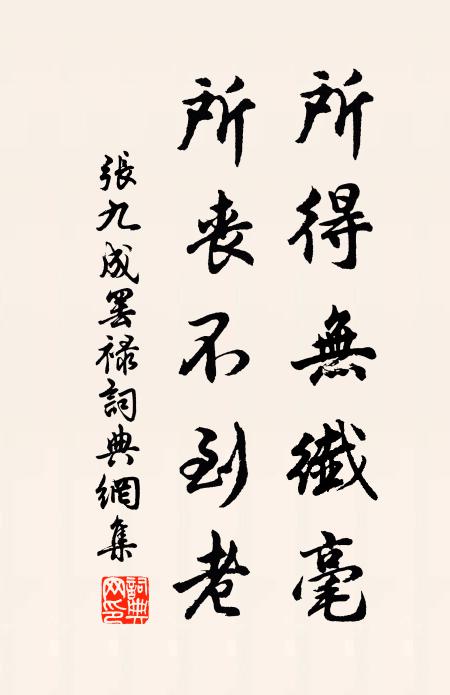 所得無纖毫
所喪不到老
張九成罢祿詞典網集
詞典網印